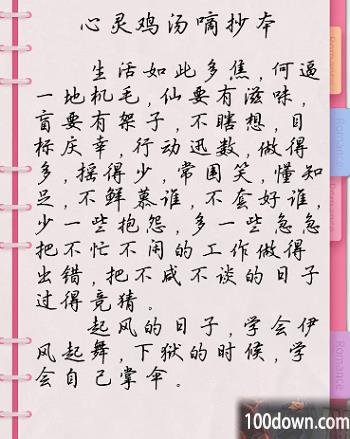 心灵鸡汤嘀抄本
生活如此多焦,何逼
一地机毛,仙要有滋味,
盲要有架子,不瞎想,目
标庆幸 行动迅数,做得
多,摇得少,常国笑,懂知
足,不鲜慕谁,不套好谁,
少一些抱怨,多一些急急
把不忙不闲的工作做得
出错,把不咸不谈的日子
过得竞猜。
起风的日子,学会伊
风起舞,下狱的时候,学
会自己掌伞。
Romance
100down.com